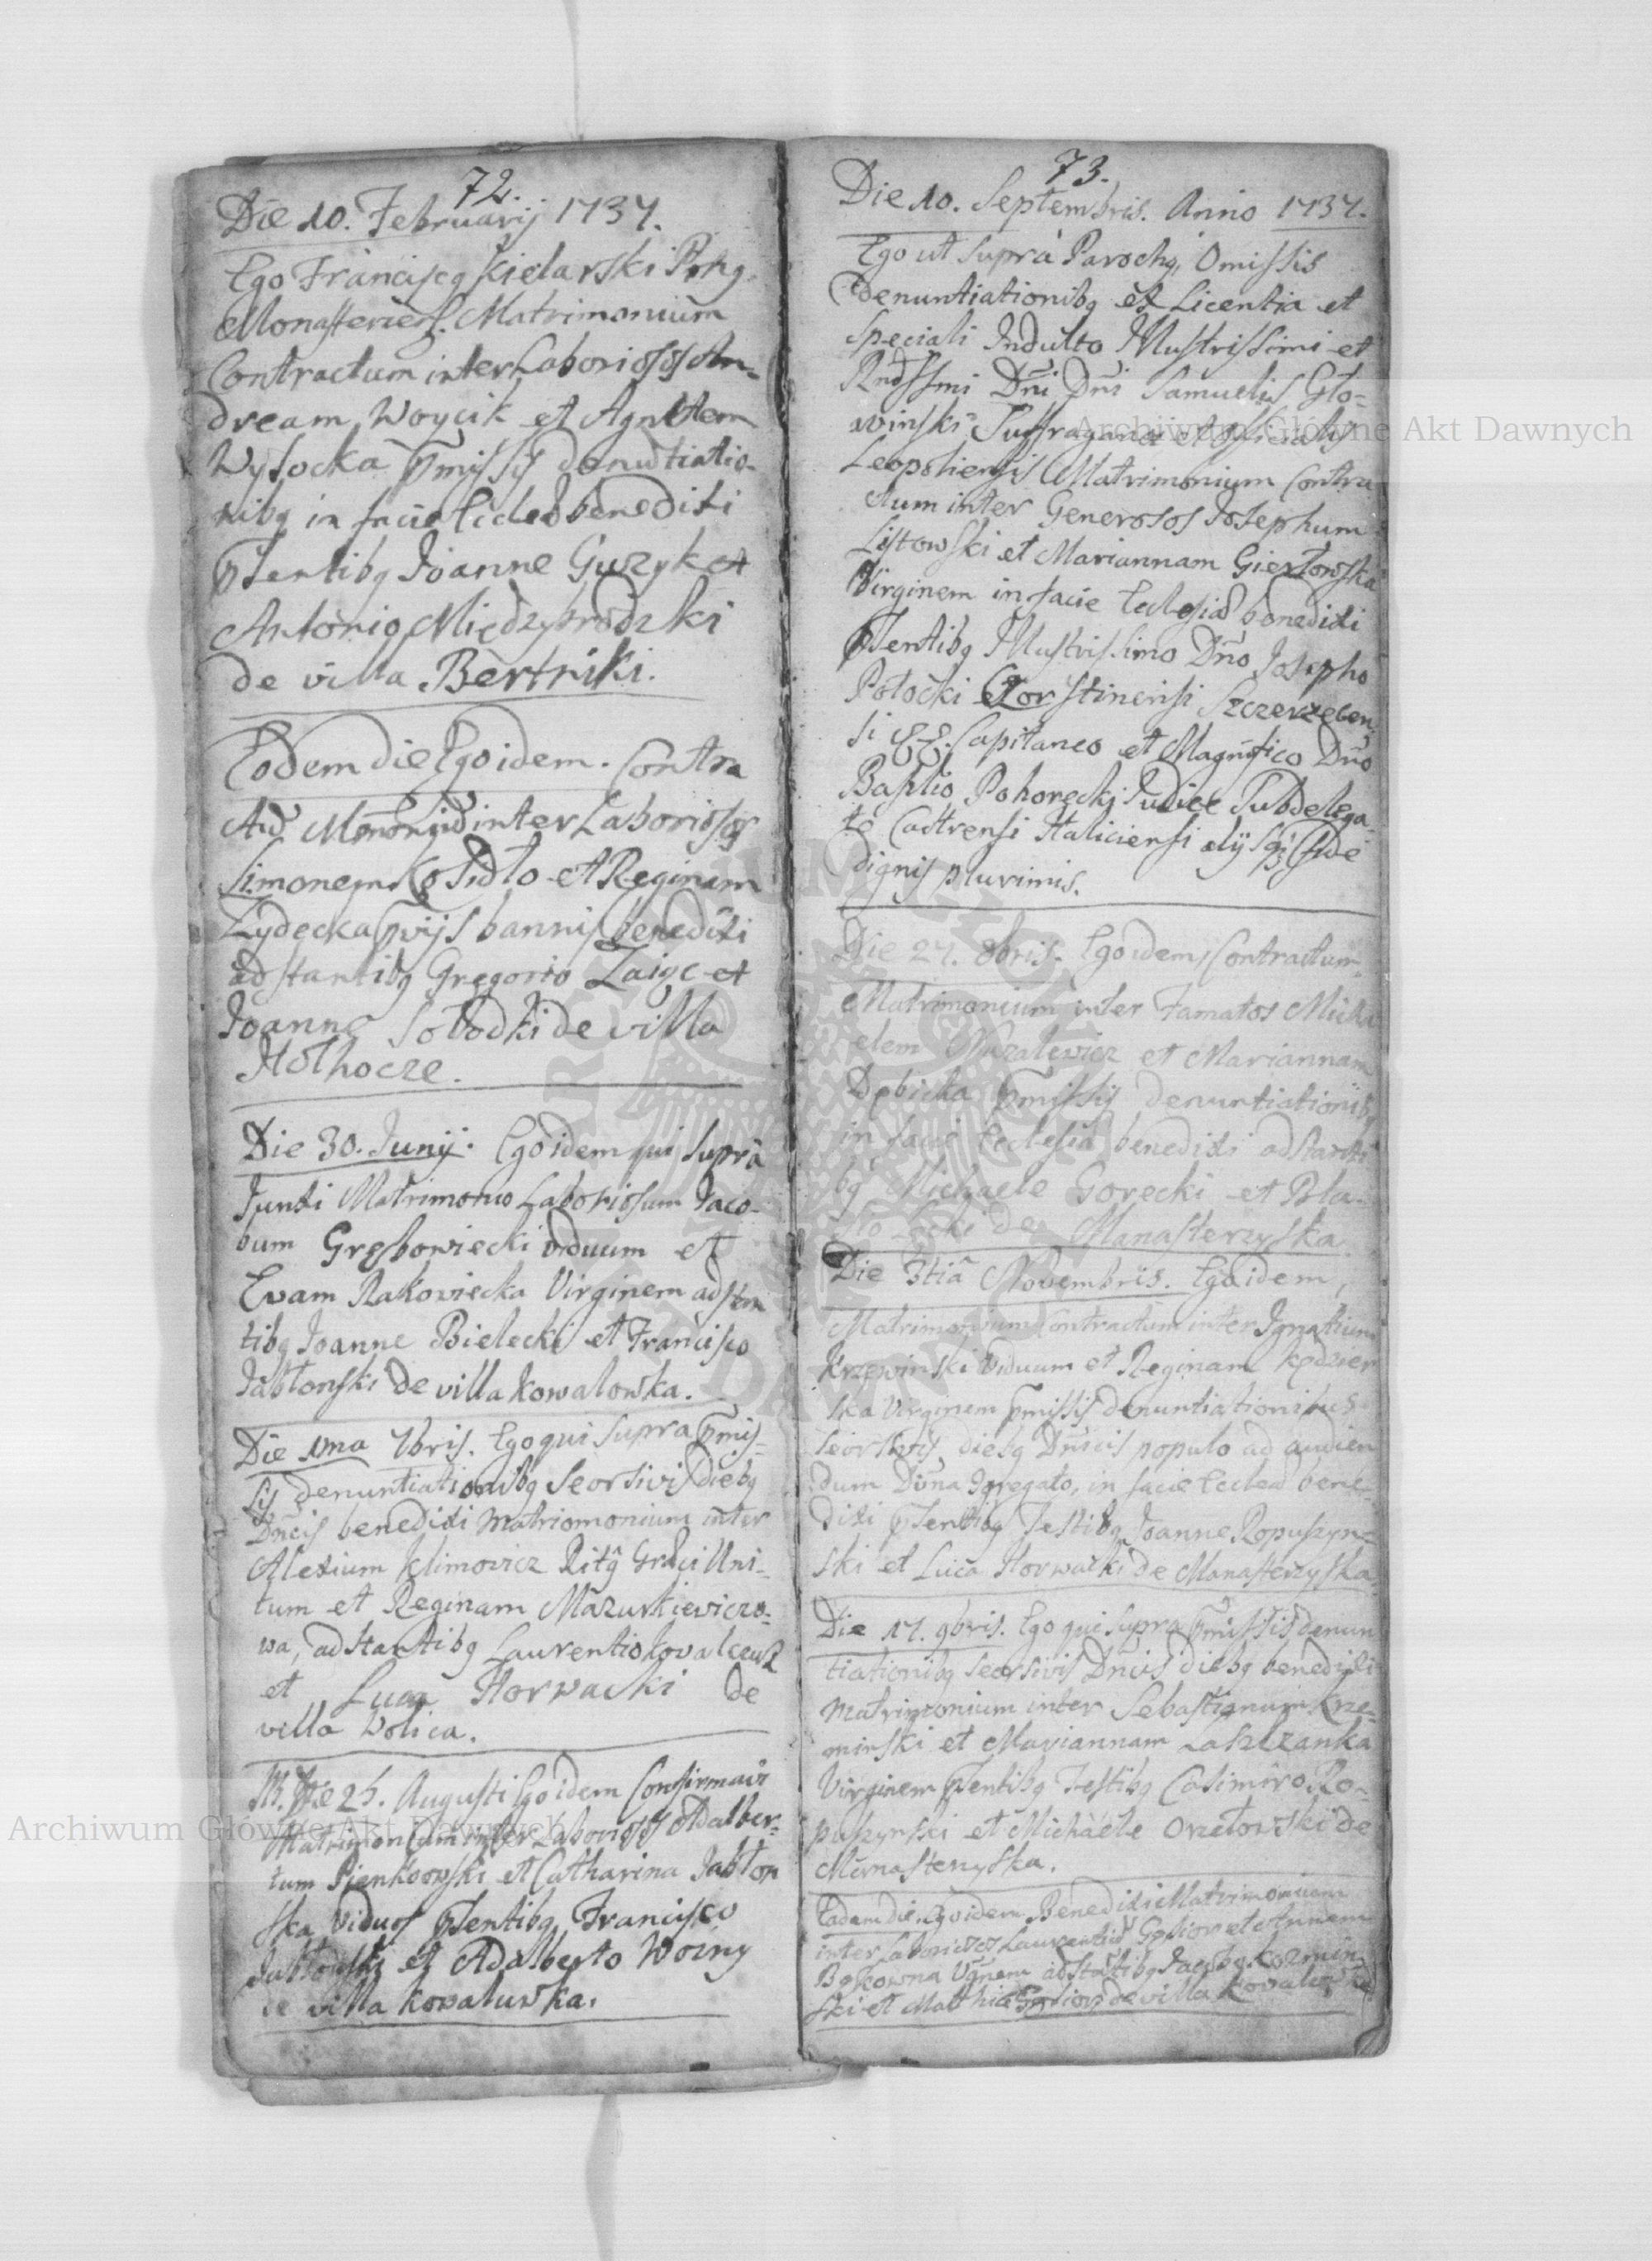 72.
Die 10. Februarij 1737.
Ego Franciscq Kielarski Pphq
Monasteriens. Matrimonium
Contractum inter Laboriosos An-
dream Woycik et Agnetem
Wysocka pmissis denutiatio-
nibq in facie Eccleae benedixi
psentibq Joanne Guzyk et
Antonio Międzybrodzki
de villa Bertniki.
Eodem die Ego idem. Contra
Matrimonium inter Laboriosos
Simonem Kosidlo et Reginam
Zydecka pvijs bannis benedixi
adstantibq Gregorio Zaigc et
Joanne Sobodki de villa
Holhocze.
Die 30. Junij. Ego idem qui supra
Junxi Matrimonio Laboriosum Jaco-
bum Grębowiecki viduum et
Evam Rakowiecka Virginem adstan
tibq Joanne Bielecki et Francisco
Jabłonski de villa Kowalowka.
Die 1ma 7bris. Ego qui supra pmis-
sis denuntiationibq Seorsivis diebq
Dnicis benedixi matriomonium inter
Alexium Klimowicz Ritq Graeci Uni-
tum et Reginam Mazurkiewiczo-
wa, adstantibq Laurentio Kovalczuk
et Luca Horwacki de
villa Wolica.
Die 25. Augusti Ego idem Confirmavi
Matrimonium inter Laboriosos Adalber-
tum Pienkowski et Catharina Jabłon
ska Viduos psentibq Francisco
Jabłonski et Adalberto Wozny
de villa Kowaluwka.
73.
Die 10. Septembris. Anno 1737.
Ego ut supra Parochq, Omissis
denuntiationibq ex Licentia et
speciali Indulto Illustrissimi et
Rndssmi Dni Dni Samuelis Glo-
winski Suffraganei et Officialis
Leopoliensis Matrimonium Contra
ctum inter Generosos Josephum
Listowski et Mariannam Gierłowska
Virginem in facie Eclesiae benedixi
psentibq Illustrissimo Dno Josepho
Potocki Czorstinensi Szczerzecen-
si &&. Capitaneo et Magnifico Dno
Basilio Pohorecki Judice Subdelega-
to Castrensi Haliciensi alijsq fide
dignis plurimis.
Die 27. 8bris. Ego idem Contractum
Matrimonium inter Famatos Micha
elem Nuzalewicz et Mariannam
Dębicka pmissis denuntiationib
in facie Ecclesiae benedixi adstanti
bq Michaele Gorecki et Bla-
de Manasterzyska
Die 3tia Novembris. Ego idem,
Matrimonium Contractum inter Ignatium
Krzewinski Viduum et Reginam Kędzier
ska Virginem pmissis denuntiationibus
seorsivis diebq Dnicis populo ad audien
dum Divina Cgregato, in facie Eccleae bene-
dixi psentibq Testibq Joanne Ropuszyn-
ski et Luca Horwacki de Manasterzyska.
Die 17. 9bris. Ego qui supra pmissis denun
tiationibq seorsivis Dnicis diebq benedixi
matrimonium inter Sebastianum Krze-
minski et Mariannam Laszczanka
Virginem psentibq Testibq Casimiro Ro-
puszynski et Michaele Orzełowski de
Manasterzyska.
Eadem die. Ego idem Benedixi Matrimonium
inter Laboriosos Laurentiu Gąsior et Annam
Bąkowna Vgnem adstatibq Jacobq Kozmin
ski et Matthia Gąsior de villa Kowaluwka
Archiwum Główne Akt Dawnych
Archiwum Główne Akt Dawnych